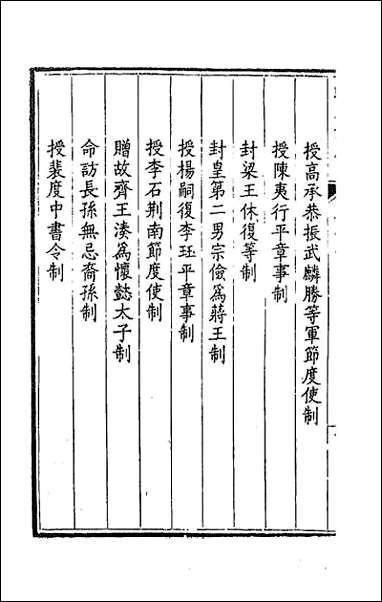 授高承恭振武麟勝等軍節度使制
授陳夷行平章事制
封梁王休復等制
封皇第二男宗儉為蔣王制
授楊嗣復李珏平章事制
授李石荆南節度使制
贈故齊王湊為懷懿太子制
命訪長孫無忌裔孫制
授裴度中書令制